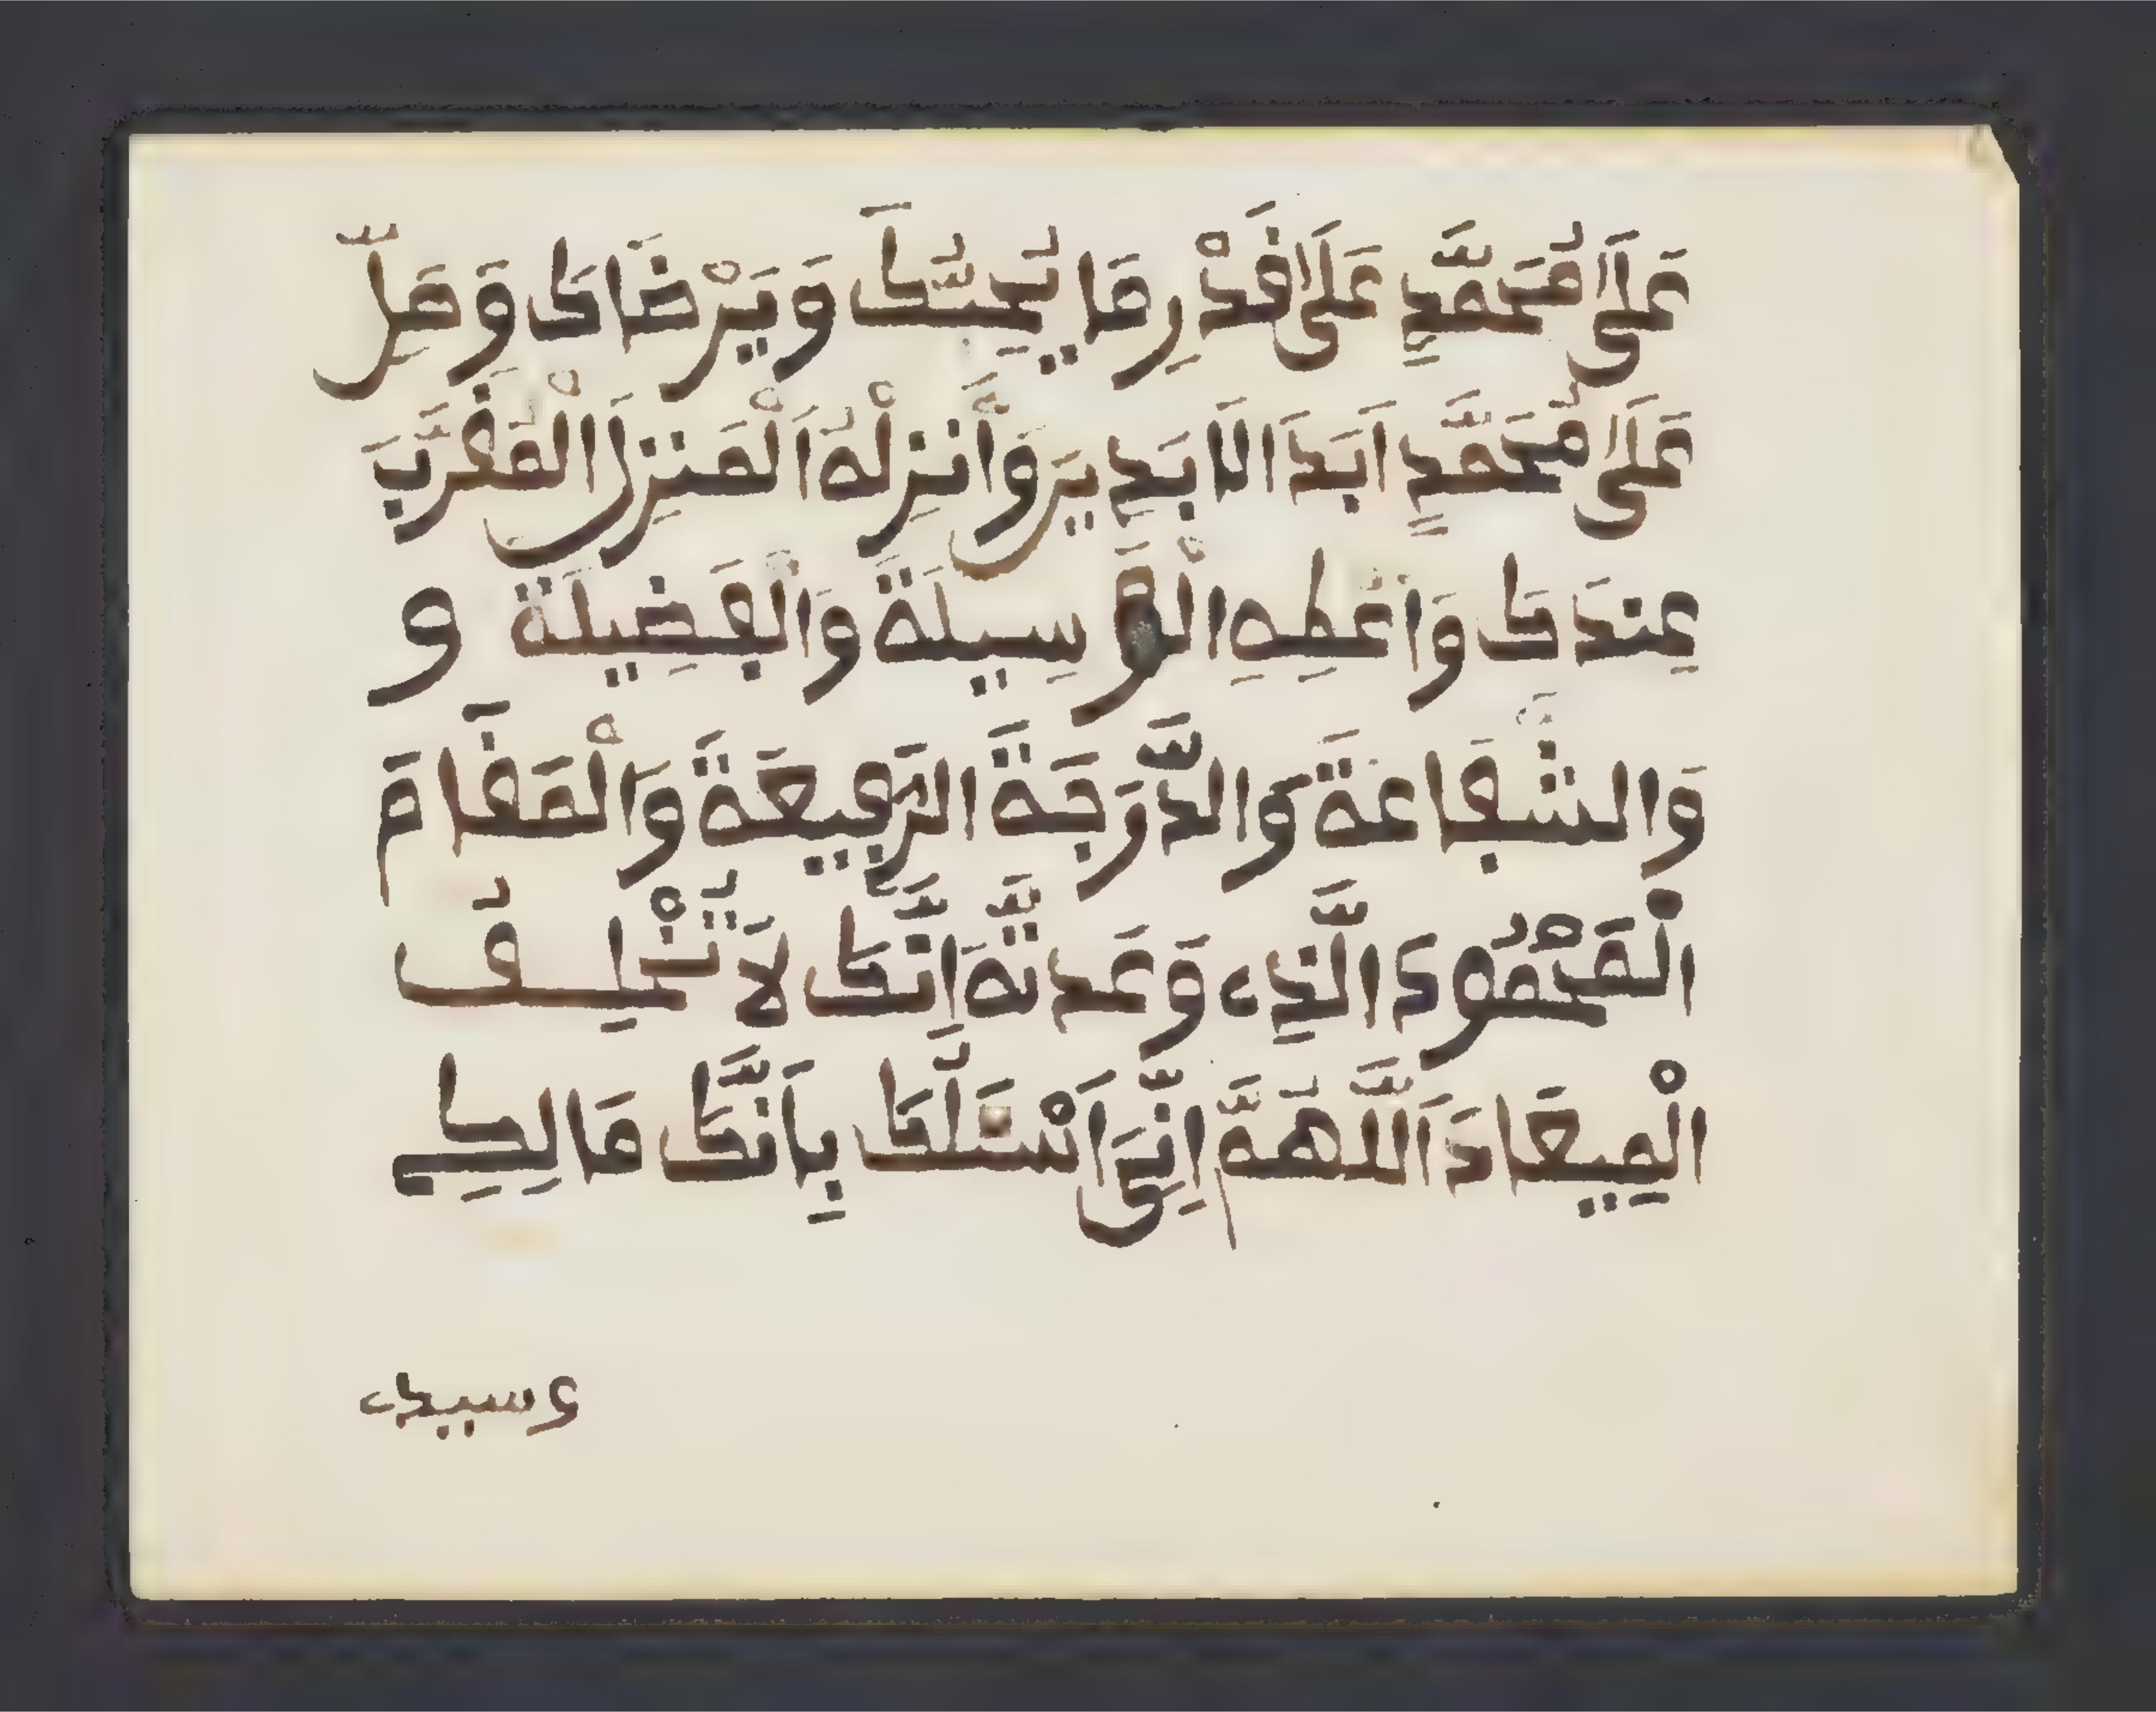 عَلَىٰ مُحَمَّدٍ عَلَىٰ قَدْرِ مَا يُحِبُّكَ وَيَرْضَاكَ وَصَلِّ
عَلَىٰ مُحَمَّدٍ اَبَدَ الَابَدِينَ وَأَنزِلْهُ اَلْمَنزِلَ الْمُقَرَّبَ
عِندَكَ وَاَعْطِهِ الْوَسِيلَةَ وَالْفَضِيلَةَ و
وَالشَّفَاعَةَ وَالدَّرَجَةَ الرَّفِيعَةَ وَالْمَقَامَ
الْمَحْمُودَ الَّذِے وَعَدتَّهُ اِنَّكَ لَا تُخْلِفُ
الْمِيعَادَ اَللَّهُمَّ اِنِّى اَسْئَلُكَ بِاَنَّكَ مَالِكِے
وسيدے